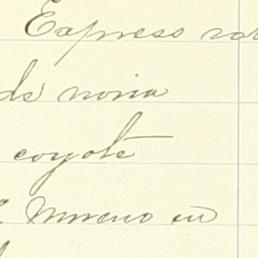 Express
de noria
coyote
Moreno en